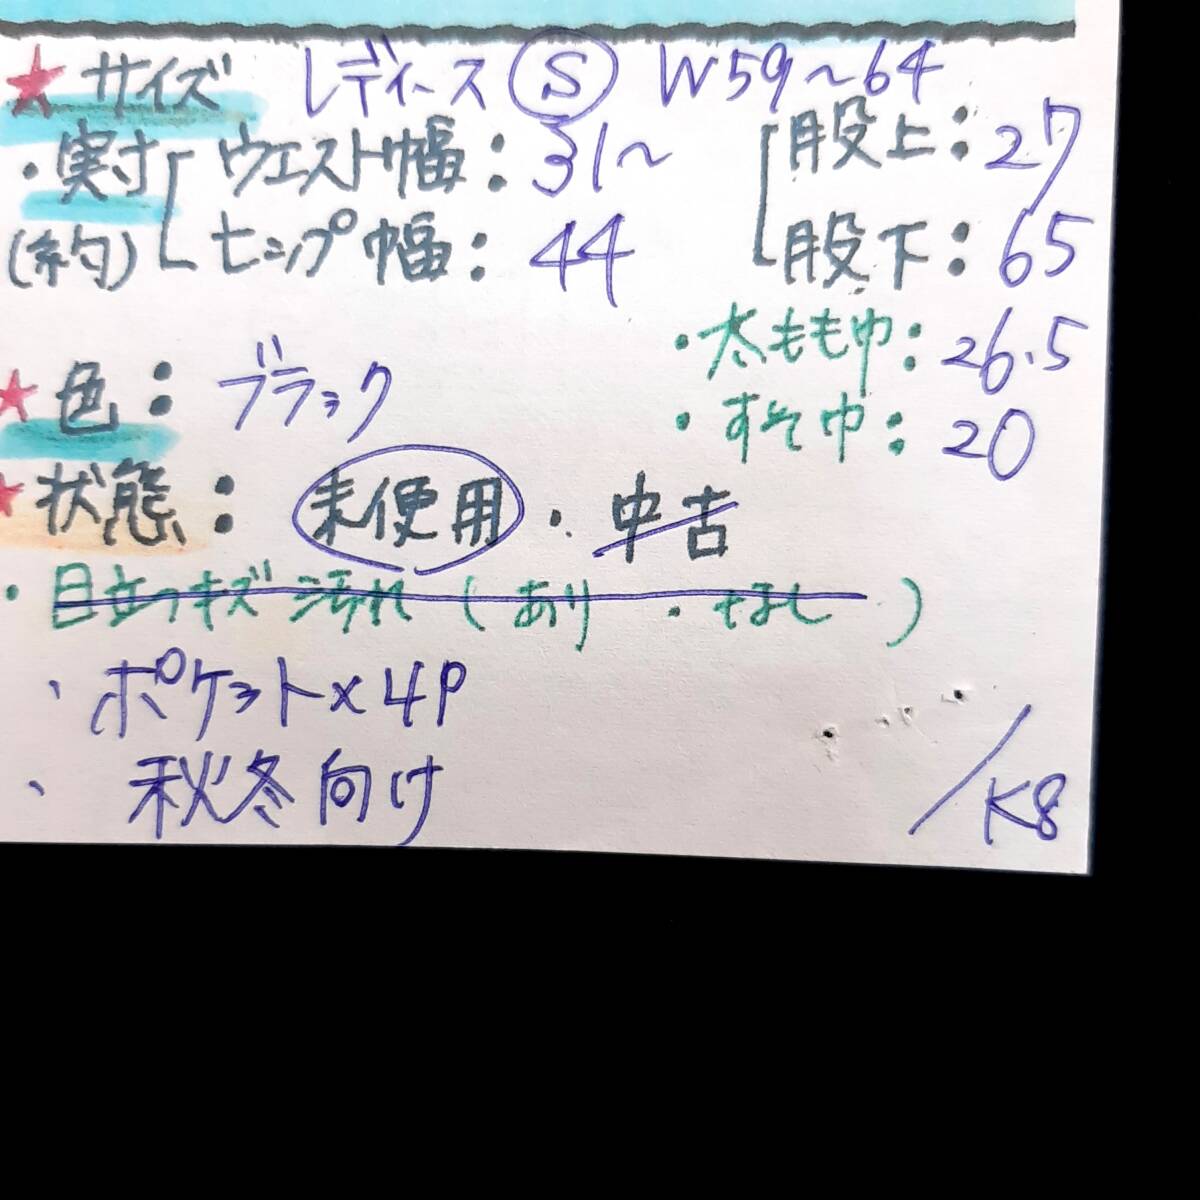 ★サイズ レディース Ⓢ W59～64
・実寸 ウエスト幅：31～ 股上：27
(約) ヒップ幅：44 股下：65
・太もも巾：26.5
★色：ブラック
・すそ巾：20
★状態：未使用・中古
・目立つキズ汚れ（あり・なし）
、ポケット×4P
、秋冬向け
／K8